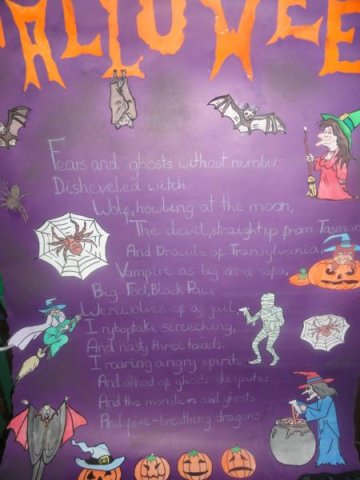 HALLOWEE
Fears and ghosts without number
Disheveled witch
Wolf, howling at the moon,
The devil, straight up from Tasman
And Dracula of Transylvania
Vampire as big as a sofa,
Big Foot, Black
Werewolves of
screeching,
And nasty three toads.
I roaring angry spirits
And a host of ghosts
And the monsters and ghosts
And fire-breathing dragons